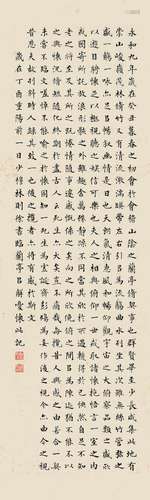 永和九年歲在癸丑暮春之初會稽山陰之蘭亭脩禊事也群賢畢至少長咸集此地有
崇山峻嶺茂林脩竹又有清流激湍映帶左右引以為流觴曲水列坐其次雖無絲竹管弦之
盛一觴一詠亦足以暢敘幽情是日也天朗氣清惠風和暢仰觀宇宙之大俯察品類之盛所
以遊目騁懷足以極視聽之娛信可樂也夫人之相與俯仰一世或取諸懷抱悟言一室之內
或因寄所託放浪形骸之外雖趣舍萬殊靜躁不同當其欣於所遇暫得於己快然自足不知
老之將至及其所之既倦情隨事遷感慨係之矣向之所欣俛仰之間以為陳迹猶不能不以
之興懷況脩短隨化終期於盡古人云死生亦大矣豈不痛哉每攬昔人興感之由若合一契
未嘗不臨文嗟悼不能喻之於懷固知一死生為虛誕齊彭殤為妄作後之視今亦由今之視
昔悲夫故列敘時人錄其所述後之攬者亦將有感於斯文
歲在丁酉重陽前一日少修林則徐書臨蘭亭以記